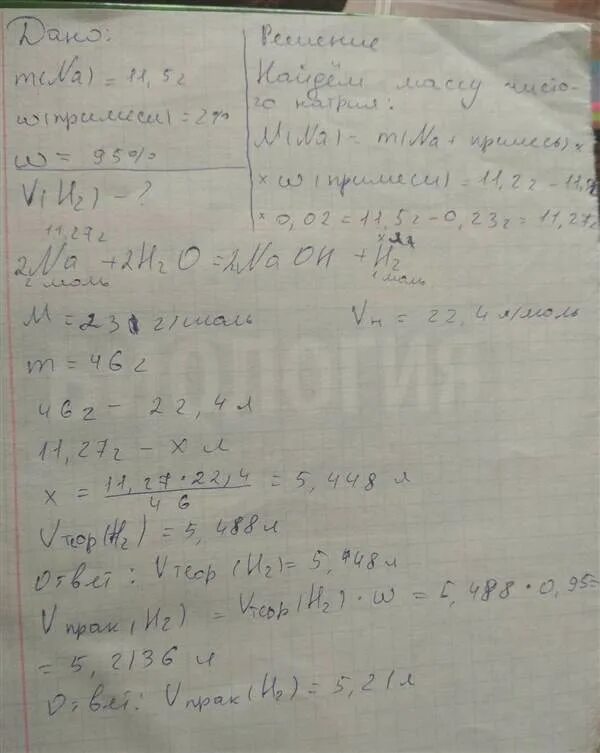 Дано:
m(Na) = 11,5г
w(примеси) = 2%
w = 95%
V(H₂) - ?
Решение
Найдём массу чисто-
го натрия:
M(Na) = m(Na + примесь) ×
× w(примеси) = 11,2г - 11,5
× 0,02 = 11,5г - 0,23г = 11,27г
11,27г x л
2Na + 2H₂O = 2NaOH + H₂
2 моль 1 моль
M = 23 г/моль Vн = 22,4 л/моль
m = 46 г
46г - 22,4 л
11,27г - x л
x = 11,27 · 22,4 / 46 = 5,448 л
Vтеор(H₂) = 5,488 л
Ответ: Vтеор(H₂) = 5,448 л
Vпрак(H₂) = Vтеор(H₂) · w = 5,488 · 0,95=
= 5,2136 л
Ответ: Vпрак(H₂) = 5,21л